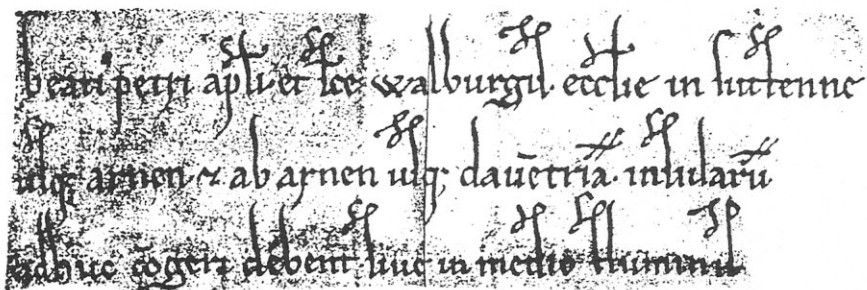 beati petri apli et sce walburgis ecclie in suttenne
usq; arnen ⁊ ab arnen usq; dauētriā insularū
adhuc debent siue in medio fluminis